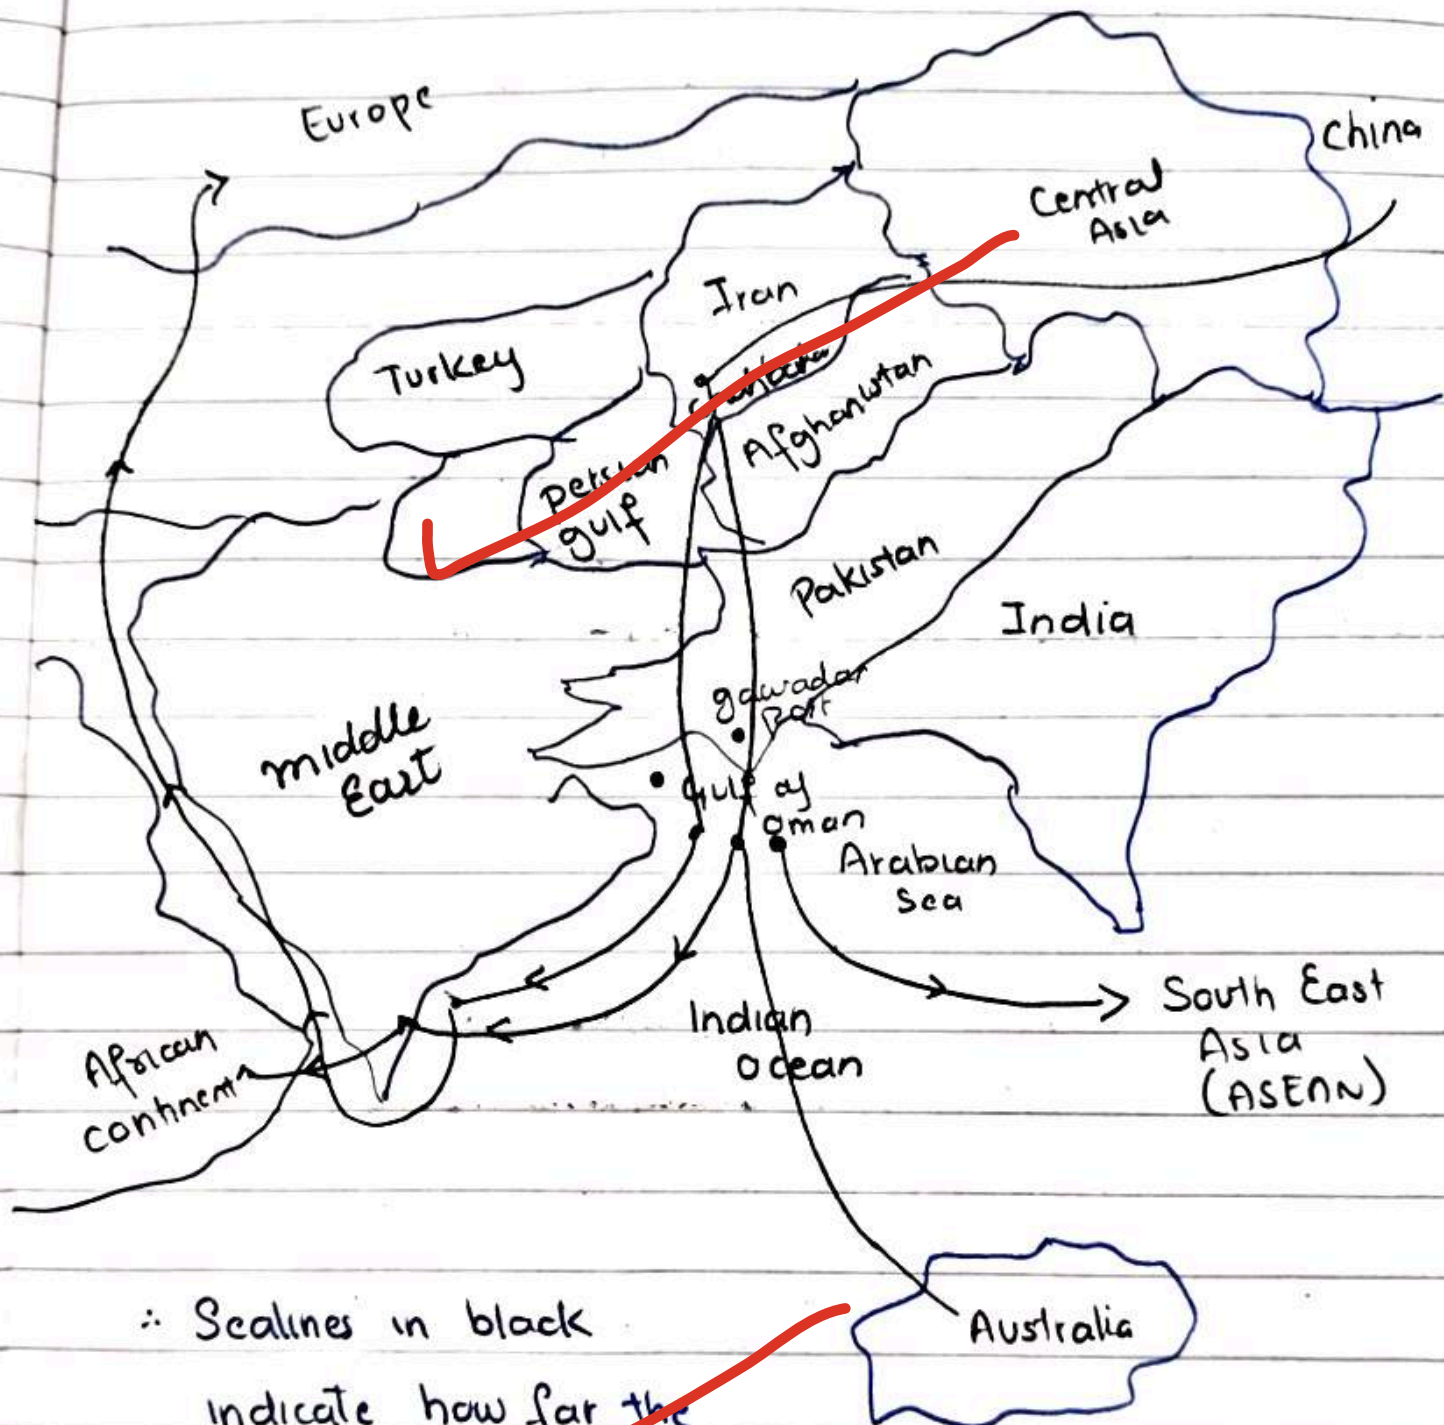 Europe
China
Central
Asia
Iran
Turkey
Afghanistan
Persian
gulf
Pakistan
India
gawadar
Port
Middle
East
Gulf of
Oman
Arabian
Sea
South East
Asia
(ASEAN)
Indian
Ocean
African
continent
Australia
∴ Sealines in black
indicate how far the